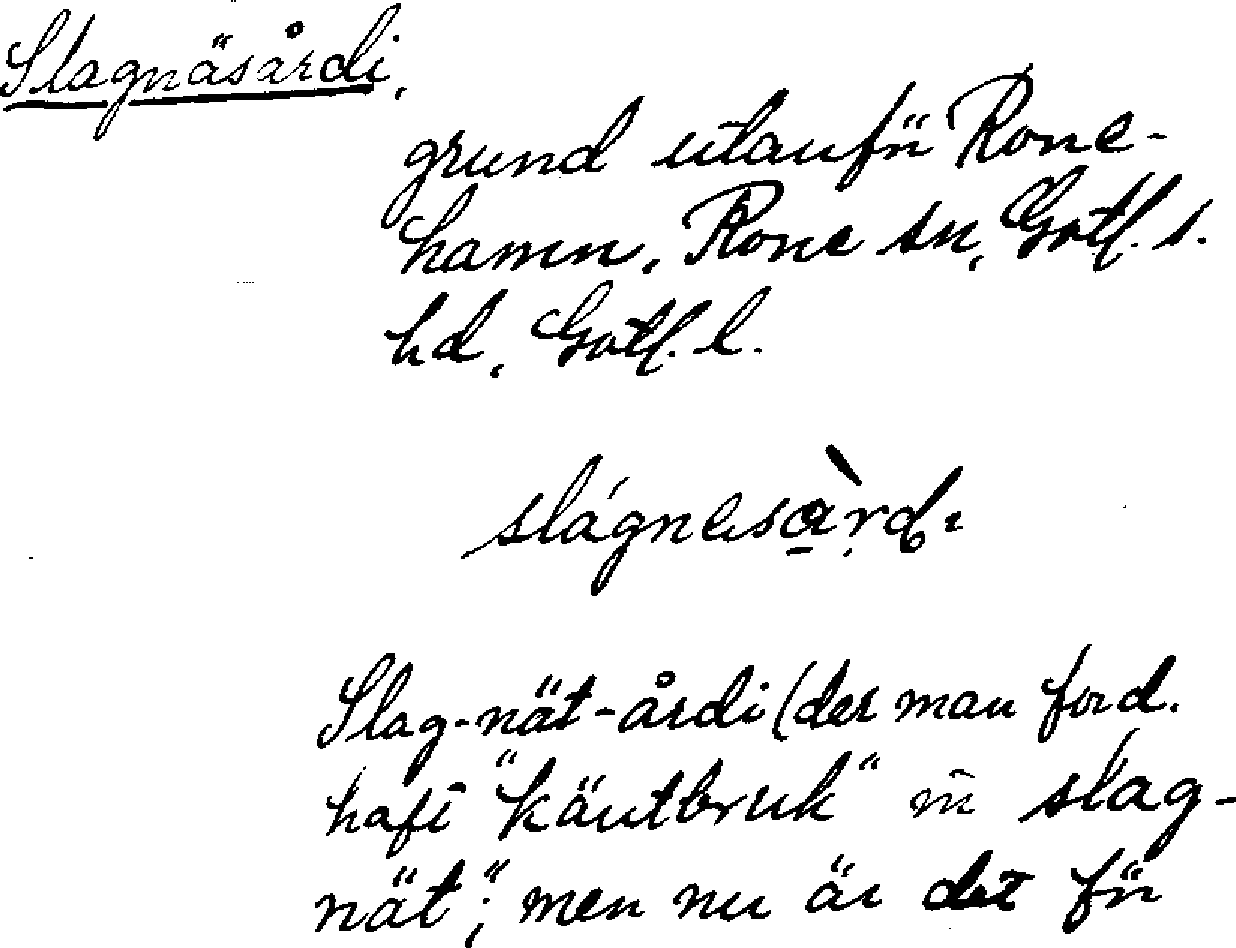 Slagnäsårdi,
grund utanför Rone-
hamn, Rone sn, Gotl. s.
hd, Gotl. l.
slágnesàrdı
Slag-nät-årdi (der man ford.
haft "käutbruk" m̄ slag-
nät"; men nu är det för